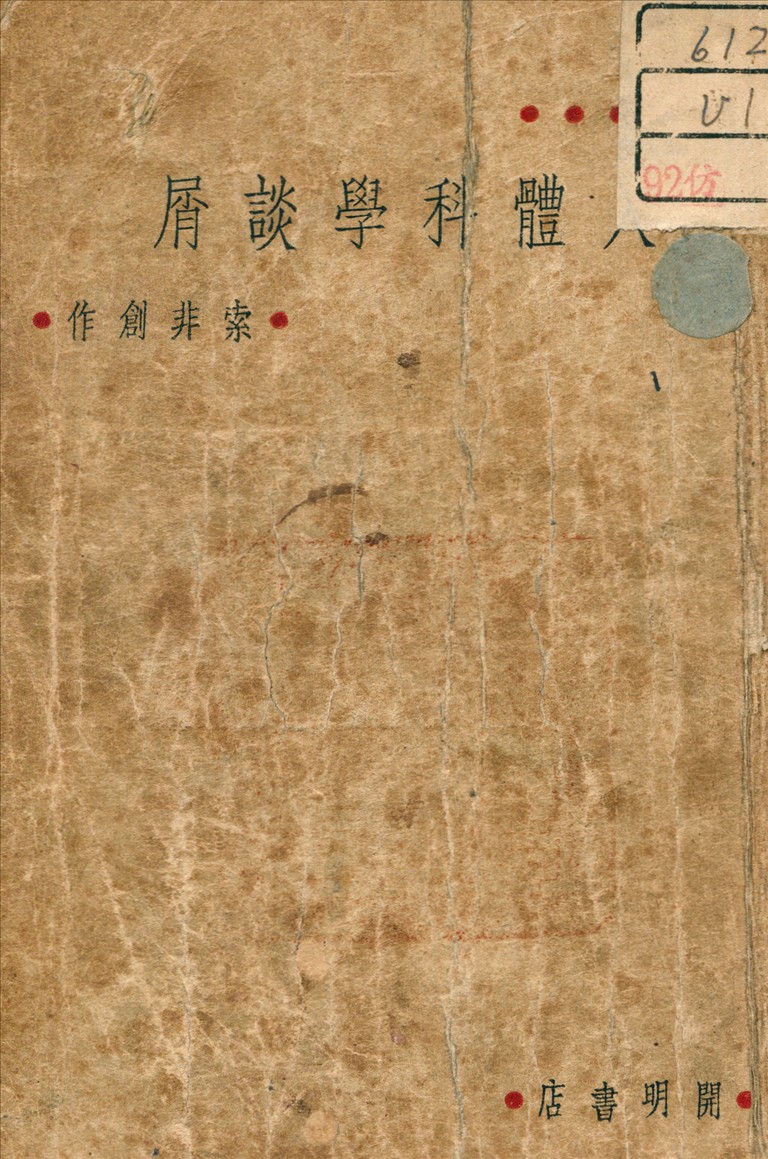 612
V1
92仿
人體科學談屑
●索非創作●
●開明書店●